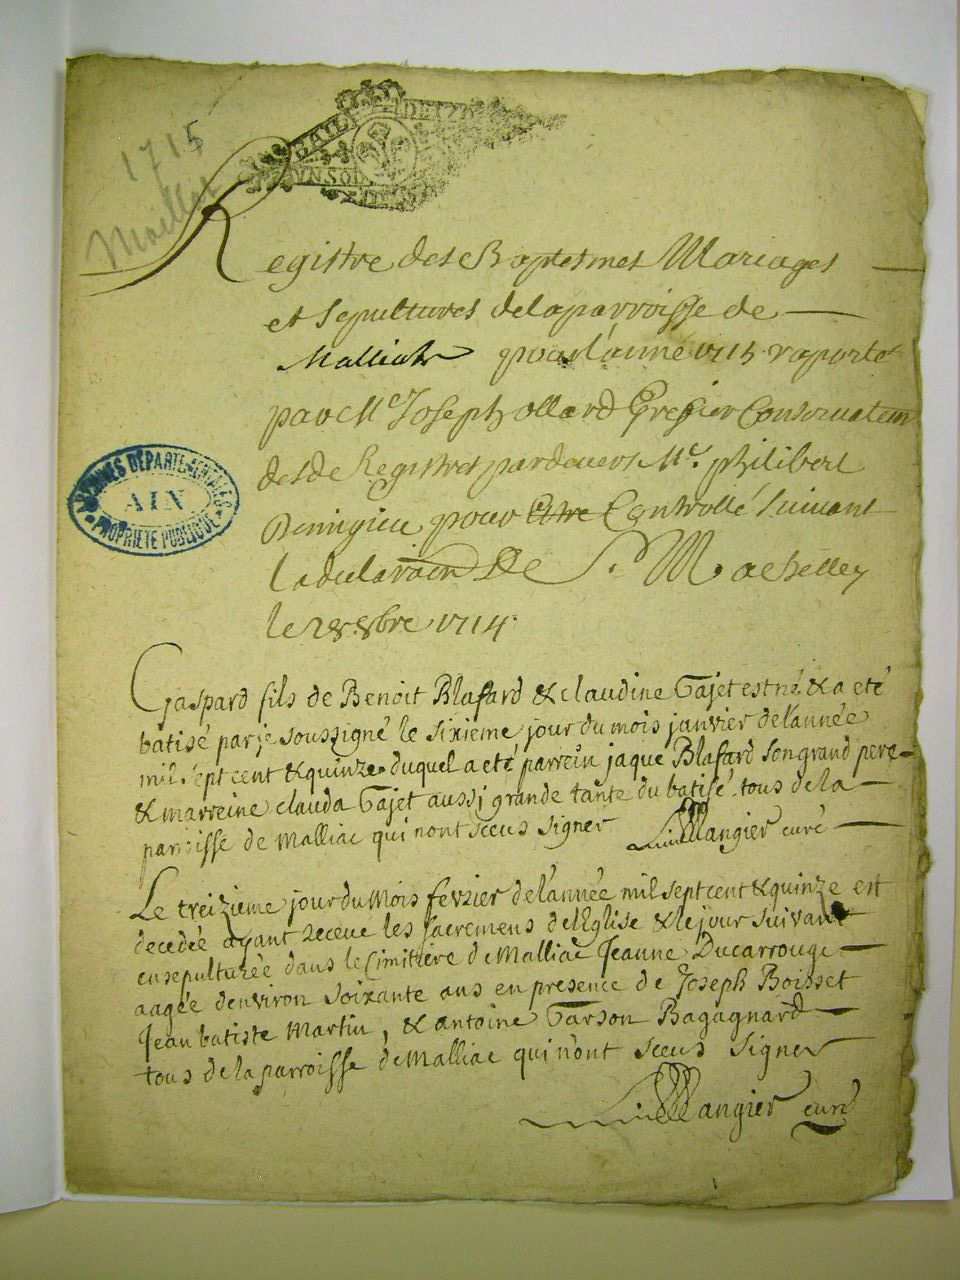 1715
Maillat
Registre des Baptesmes Mariages
et Sepultures de la parroisse de
Malliat pour l'anneé 1715 raporté
par Me Joseph ollard Grefier Conservateur
des de Registres pardevers Mr. philibert
pour Etre Controllé Suivant
la declaraõn De S. M. a
le 28 8bre 1714
ARCHIVES DÉPARTEMENTALES
AIN
PROPRIÉTÉ PUBLIQUE
Gaspard fils de Benoit Blafard & claudine Gajet est né & a eté
batisé par je soussigné le sixieme jour du mois janvier de l'année
mil sept cent & quinze duquel a eté parrein jaque Blafard son grand pere
& marreine clauda Gajet aussi grande tante du batisé tous de la
parroisse de Malliac qui n'ont sceus signer Mangier curé
Le treizieme jour du Mois fevrier de l'année mil sept cent & quinze est
decedée ayant receue les sacremens de l'Eglise & le jour suivant
ensepulturée dans le Cimitière de Malliac Jeanne Ducarrouge
aagée d'environ soixante ans en presence de Joseph Boisset
Jean batiste Martin, & antoine Garson Bagagnard
tous de la parroisse de Malliac qui n'ont sceus signer
Mangier curé